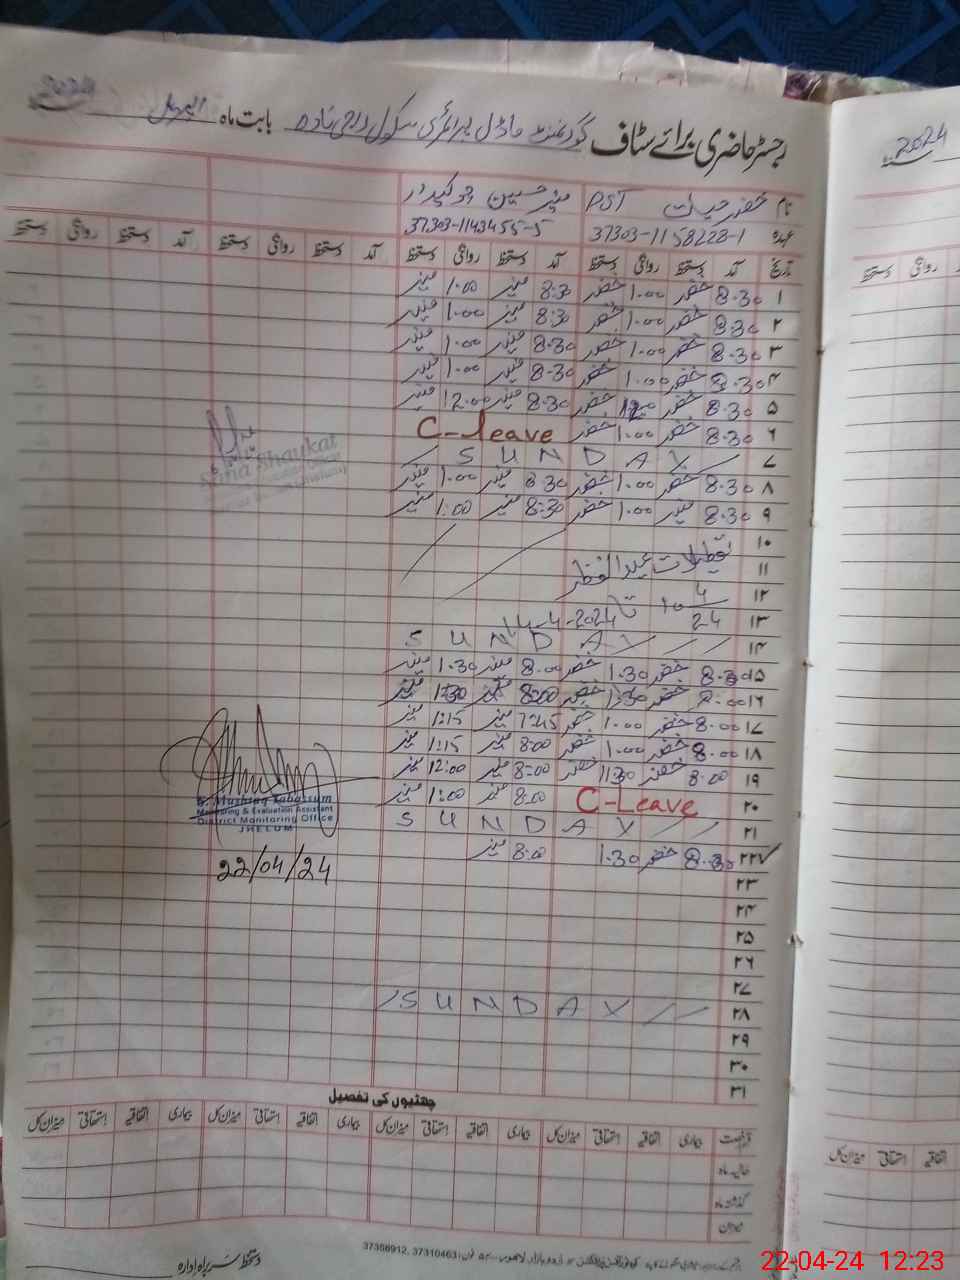 رجسٹر حاضری برائے سٹاف گورنمنٹ ماڈل پرائمری سکول بابت ماہ اپریل
2024
نام خضر حیات PST منیر حسین چوکیدار
عہدہ 37303-1158228-1 37303-1143455-5
تاریخ آمد دستخط روانگی دستخط آمد دستخط روانگی دستخط آمد دستخط روانگی دستخط آمد دستخط روانگی دستخط
۱ 8.30 خضر 1.00 خضر 8:30 منیر 1.00 منیر
۲ 8.30 خضر 1.00 خضر 8:30 منیر 1.00 منیر
۳ 8.30 خضر 1.00 خضر 8.30 منیر 1.00 منیر
۴ 8.30 خضر 1.00 خضر 8.30 منیر 1.00 منیر
۵ 8.30 خضر خضر 8.30 منیر 12.00 منیر
۶ 8.30 خضر 1.00 خضر C-leave
۷ SUNDAY
۸ 8.30 خضر 1.00 خضر 8.30 منیر 1.00 منیر
۹ 8.30 1.00 خضر 8:30 منیر 1:00 منیر
۱۰
۱۱ تعطیلات عید الفطر
۱۲
۱۳ 10-4-24 تا 14-4-2024
۱۴ SUNDAY
۱۵ 8.30 خضر 1.30 خضر 8.00 منیر 1.30 منیر
۱۶ 8.00 خضر 1:30 خضر 8:00 منیر 1:30 منیر
۱۷ 8.00 خضر 1.00 خضر 7:45 منیر 1:15 منیر
۱۸ 8.00 خضر 1.00 خضر 8:00 منیر 1:15 منیر
۱۹ 8.00 خضر 11:30 خضر 8:00 منیر 12:00 منیر
۲۰ C-Leave 8:00 منیر 1:00 منیر
۲۱ SUNDAY
۲۲ 8.30 خضر 1.30 8:00 منیر
۲۳
۲۴
۲۵
۲۶
۲۷
۲۸ SUNDAY
۲۹
۳۰
۳۱
Shaukat
S. Mushtaq Tabassum
Monitoring & Evaluation Assistant
District Monitoring Office
JHELUM
22/04/24
چھٹیوں کی تفصیل
قسم رخصت بیماری اتفاقیہ استحقاقی میزان کل بیماری اتفاقیہ استحقاقی میزان کل بیماری اتفاقیہ استحقاقی میزان کل بیماری اتفاقیہ استحقاقی میزان کل
حالیہ ماہ
گذشتہ ماہ
میزان
دستخط سربراہ ادارہ
37310463, 37356912
2024
روانگی دستخط
اتفاقیہ استحقاقی میزان کل
22-04-24 12:23